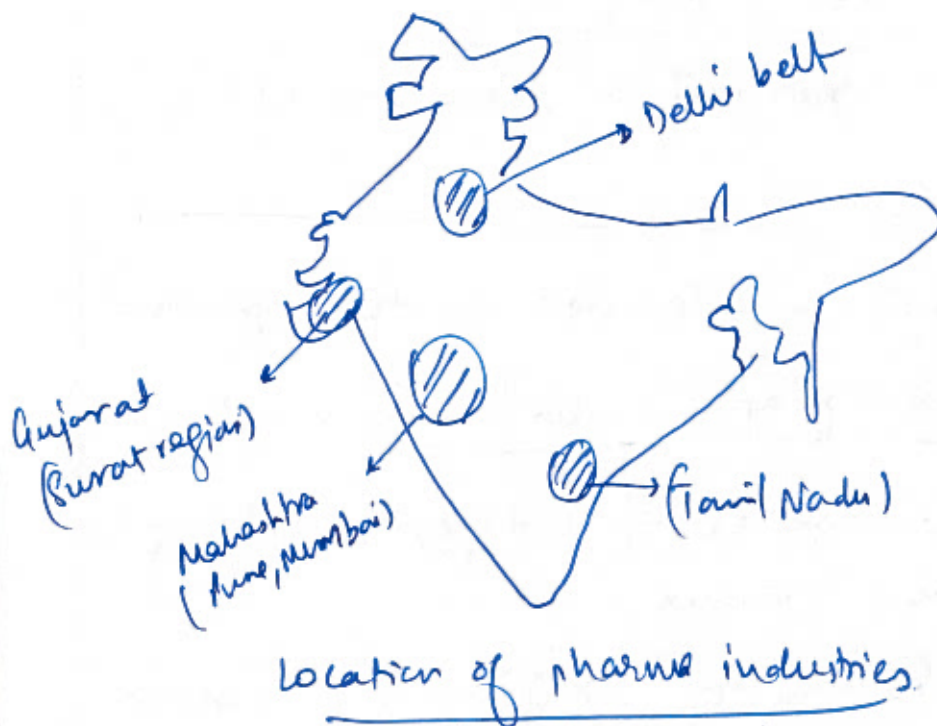 Delhi belt
Gujarat
(Surat region)
Maharashtra
(Pune, Mumbai)
(Tamil Nadu)
Location of pharma industries